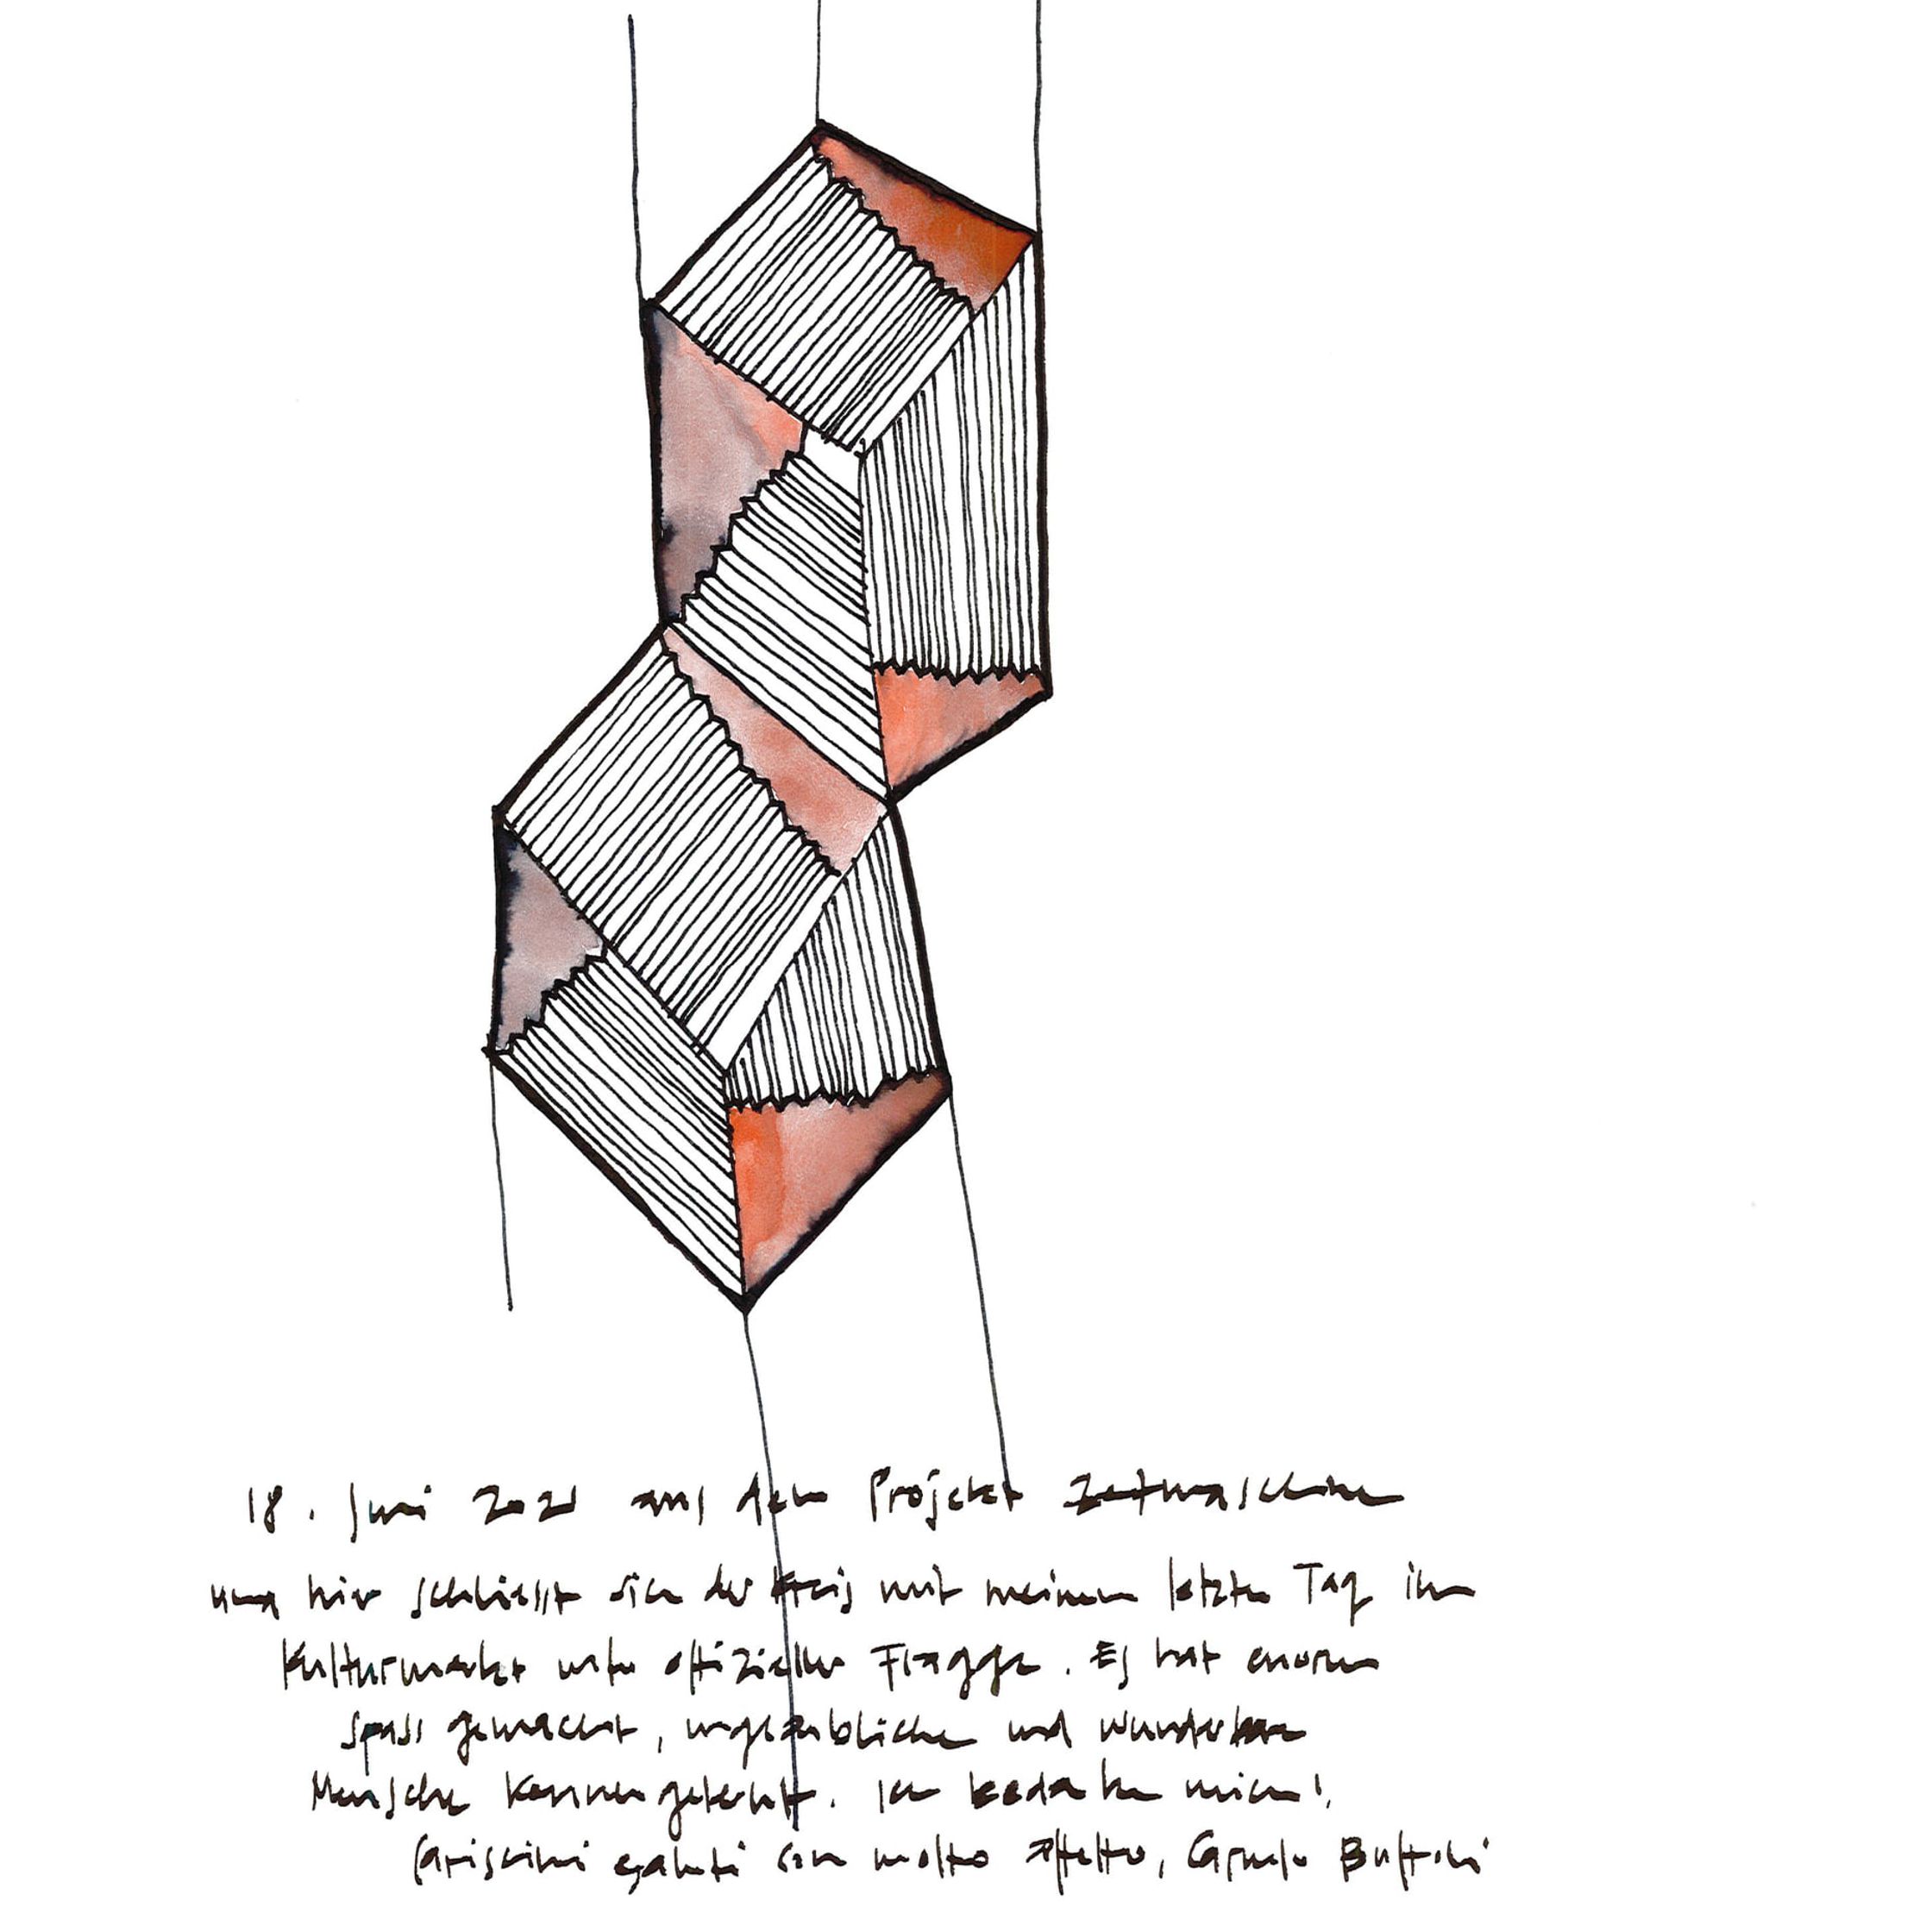 18. Juni 2021 aus dem Projekt Zeitmaschine
und hier schliesst sich der Kreis mit meinem letzten Tag im
Kulturmarkt unter offizieller Flagge. Es hat enorm
Spass gemacht, unglaubliche und wunderbare
Menschen kennengelernt. Ich bedanke mich!
Carissimi saluti con molto affetto,